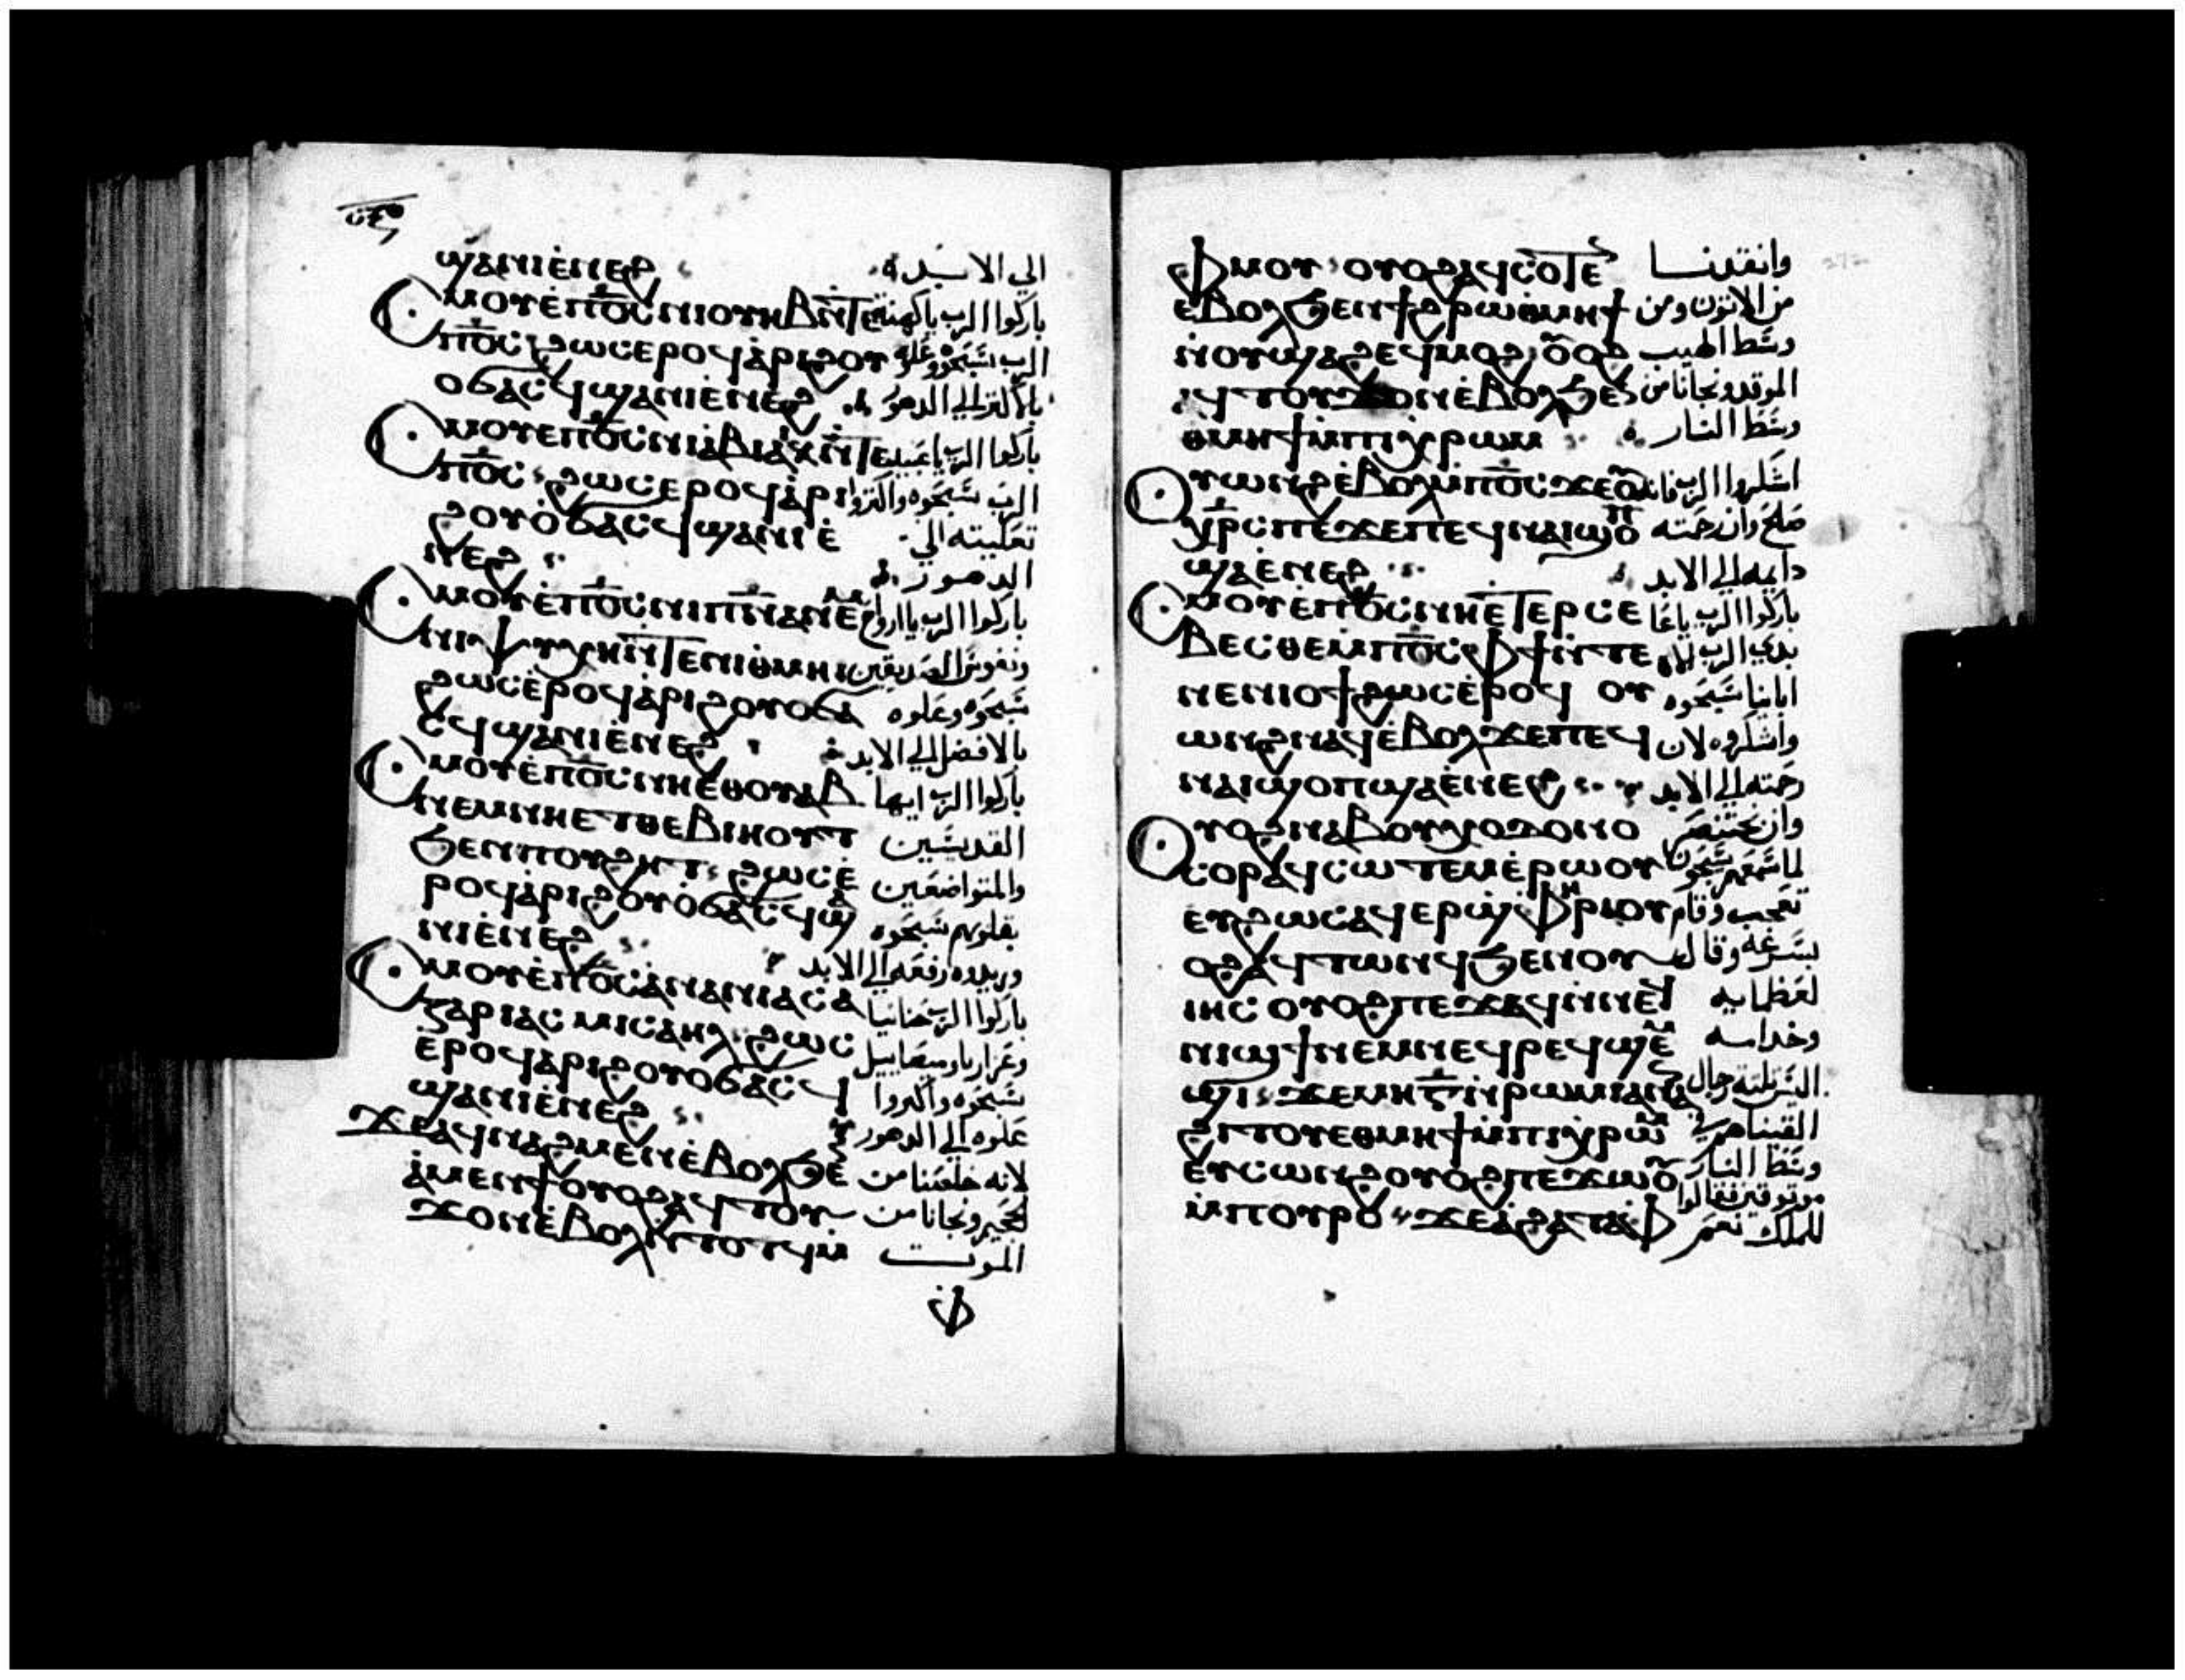 ϣⲁⲛⲓⲉⲛⲉϩ الي الابد
ⲥⲙⲟⲩ ⲉⲡⲟ̅ⲥ̅ ⲛⲓⲟⲩⲏⲃ ⲛ̀ⲧⲉ باركوا الرب ياكهنة
ⲡⲟ̅ⲥ̅ ϩⲱⲥ ⲉⲣⲟϥ ⲁⲣⲓϩⲟⲩ الرب سبحوه
ⲟϭⲁⲥϥ ϣⲁⲛⲓⲉⲛⲉϩ الي الدهور
ⲥⲙⲟⲩ ⲉⲡⲟ̅ⲥ̅ ⲛⲓⲉ̀ⲃⲓⲁⲓⲕ ⲛ̀ⲧⲉ باركوا الرب ياعبيد
ⲡⲟ̅ⲥ̅ ϩⲱⲥ ⲉⲣⲟϥ ⲁⲣⲓ الرب سبحوه واكثروا
ϩⲟⲩⲟ̀ϭⲁⲥϥ ϣⲁⲛⲓⲉ̀ الي
ⲛⲉϩ الدهور
ⲥⲙⲟⲩ ⲉ̀ⲡⲟ̅ⲥ̅ ⲛⲓⲡ̅ⲛ̅ⲁ̅ ⲛⲉⲙ باركوا الرب ياارواح
ⲛⲓⲯⲩⲭⲏ ⲛ̀ⲧⲉ ⲛⲓⲑⲙⲏⲓ ونفوس الصديقين
ϩⲱⲥ ⲉ̀ⲣⲟϥ ⲁ̀ⲣⲓϩⲟⲩⲟϭⲁ سبحوه وعلوه
ⲥϥ ϣⲁⲛⲓⲉ̀ⲛⲉϩ بالافضل الي الابد
ⲥⲙⲟⲩ ⲉ̀ⲡⲟ̅ⲥ̅ ⲛⲏⲉ̀ⲑⲟⲩⲁⲃ باركوا الرب ايها
ⲛⲉⲙ ⲛⲏⲉⲧⲑⲉⲃⲓⲏⲟⲩⲧ القديسين
ϧⲉⲛ ⲡⲟⲩϩⲏⲧ ϩⲱⲥ ⲉ̀ والمتواضعين
ⲣⲟϥ ⲁ̀ⲣⲓϩⲟⲩⲟ̀ϭⲁⲥϥ ϣⲁ بقلوبهم سبحوه
ⲛⲓⲉ̀ⲛⲉϩ وزيدوه رفعه الي الابد
ⲥⲙⲟⲩ ⲉ̀ⲡⲟ̅ⲥ̅ ⲁ̀ⲛⲁⲛⲓⲁⲥ ⲁ باركوا الرب حنانيا
ⲍⲁⲣⲓⲁⲥ ⲙⲓⲥⲁⲏⲗ ϩⲱⲥ وعزاريا وميصاييل
ⲉ̀ⲣⲟϥ ⲁ̀ⲣⲓϩⲟⲩⲟϭⲁⲥϥ سبحوه واكثروا
ϣⲁⲛⲓⲉ̀ⲛⲉϩ علوه الي الدهور
ϫⲉ ⲁϥⲛⲁϩⲙⲉⲛ ⲉ̀ⲃⲟⲗ ϧⲉⲛ لانه خلصنا من
ⲁ̀ⲙⲉⲛϯ ⲟⲩⲟϩ ⲁϥⲧⲟⲩ الجحيم ونجانا من
ϫⲟⲛ ⲉ̀ⲃⲟⲗ ⲛ̀ⲧⲟⲧϥ ⲙ̀ الموت
ⲫ
ⲫⲙⲟⲩ ⲟⲩⲟϩ ⲁϥⲥⲟⲧⲉⲛ وانقدنا
ⲉⲃⲟⲗ ϧⲉⲛ ϯϩⲣⲱ ⲑⲙⲏϯ من الاتون ومن
ⲛ̀ⲟⲩϣⲁϩ ⲉϥⲙⲟϩ ⲟⲩⲟϩ وسط اللهيب
ⲁϥⲧⲟⲩϫⲟⲛ ⲉ̀ⲃⲟⲗ ϧⲉⲛ الموقد ونجانا من
ⲑⲙⲏϯ ⲙ̀ⲡⲓⲭⲣⲱⲙ وسط النار
ⲟⲩⲱⲛϩ ⲉ̀ⲃⲟⲗ ⲙ̀ⲡⲟ̅ⲥ̅ ϫⲉ ⲟⲩ اشكروا الرب فانه
ⲭ̅ⲣ̅ⲥ̅ ⲡⲉ ϫⲉ ⲡⲉϥⲛⲁⲓ ϣⲟⲡ صالح وان رحمته
ϣⲁⲉ̀ⲛⲉϩ دايمه الي الابد
ⲥⲙⲟⲩ ⲉ̀ⲡⲟ̅ⲥ̅ ⲛⲏⲉⲧⲉⲣⲥⲉ باركوا الرب ياعا
ⲃⲉⲥⲑⲉ ⲙ̀ⲡⲟ̅ⲥ̅ ⲫϯ ⲛ̀ⲧⲉ بدي الرب اله
ⲛⲉⲛⲓⲟϯ ϩⲱⲥ ⲉ̀ⲣⲟϥ ⲟⲩ اباينا سبحوه
ⲱⲛϩ ⲛⲁϥ ⲉ̀ⲃⲟⲗ ϫⲉ ⲡⲉϥ واشكروه لان
ⲛⲁⲓ ϣⲟⲡ ϣⲁⲉ̀ⲛⲉϩ رحمته الي الابد
ⲟⲩⲟϩ ⲛⲁⲃⲟⲩⲭⲟⲇⲟⲛⲟ وان بختنصر
ⲥⲟⲣ ⲁϥⲥⲱⲧⲉⲙ ⲉ̀ⲣⲱⲟⲩ لما سمعهم يسبحون
ⲉⲩϩⲱⲥ ⲁϥⲉⲣϣⲫⲏⲣⲓ ⲟⲩ تعجب وقام
ⲟϩ ⲁϥⲧⲱⲛϥ ϧⲉⲛ ⲟⲩ بسرعه وقال
ⲓⲏⲥ ⲟⲩⲟϩ ⲡⲉϫⲁϥ ⲛ̀ⲛⲉϥ لعظمايه
ⲛⲓϣϯ ⲛⲉⲙ ⲛⲉϥⲣⲉϥϣⲉⲙ وخدامه
ϣⲓ ϫⲉ ⲙⲏ ⲅ̅ ⲛ̀ⲣⲱⲙⲓ ⲁⲛ رجال
ϩⲓⲧⲟⲩ ⲉⲑⲙⲏϯ ⲙ̀ⲡⲓⲭⲣⲱⲙ القيناهم في
ⲉⲩⲥⲱⲛϩ ⲟⲩⲟϩ ⲡⲉϫⲱⲟⲩ وسط النار
موثوقين فقالوا
ⲙ̀ⲡⲟⲩⲣⲟ ϫⲉ ⲁ̀ϩⲁ ⲧⲁⲫ للملك نعم